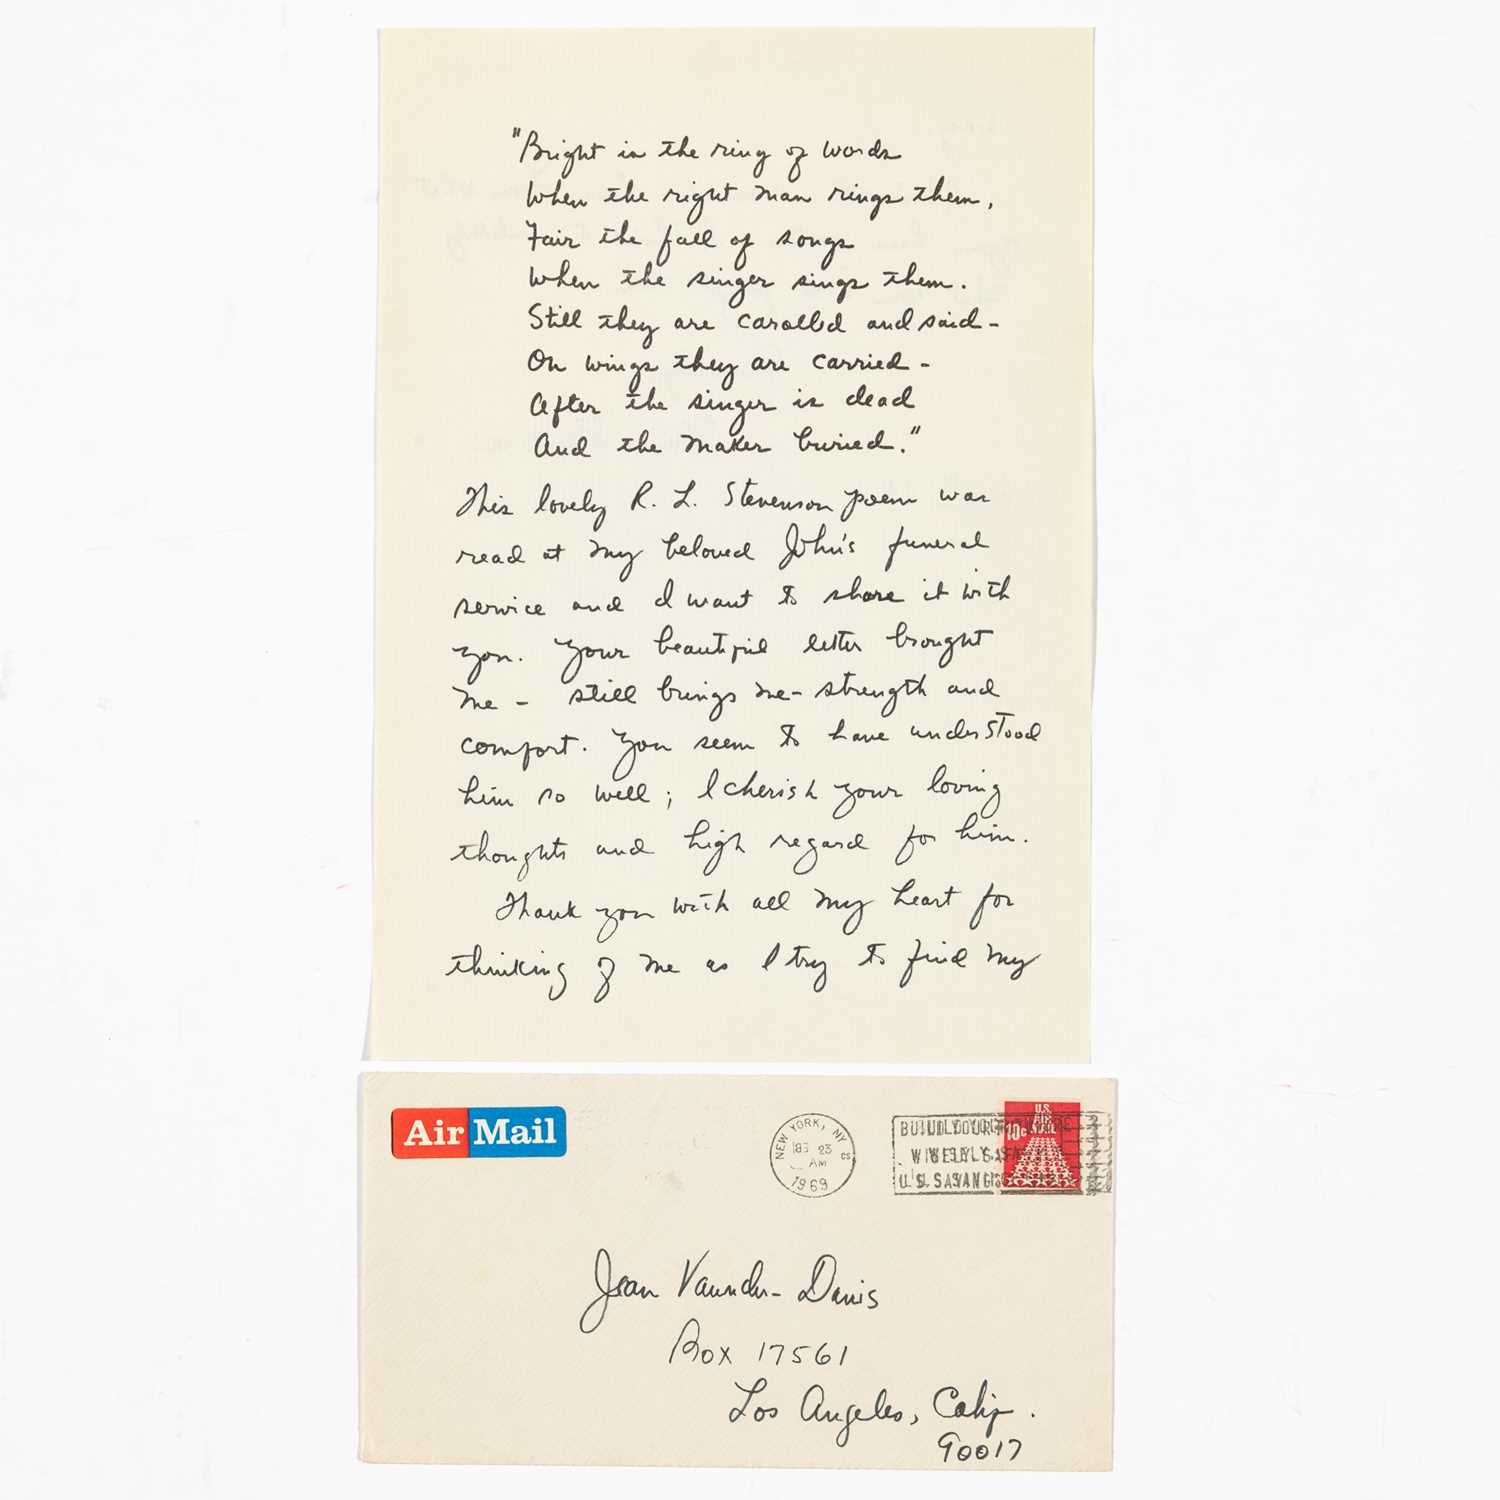 "Bright is the ring of words
When the right man rings them,
Fair the fall of songs
When the singer sings them.
Still they are carolled and said -
On wings they are carried -
After the singer is dead
And the maker buried."
This lovely R. L. Stevenson poem was
read at my beloved John's funeral
service and I want to share it with
you. Your beautiful letter brought
me - still brings me - strength and
comfort. You seem to have understood
him so well; I cherish your loving
thoughts and high regard for him.
Thank you with all my heart for
thinking of me as I try to find my
Air Mail
NEW YORK, NY
23
AM
1969
U.S.
AIR
MAIL
10c
U.S. SAVINGS
Jean Vaunder- Davis
Box 17561
Los Angeles, Calif.
90017